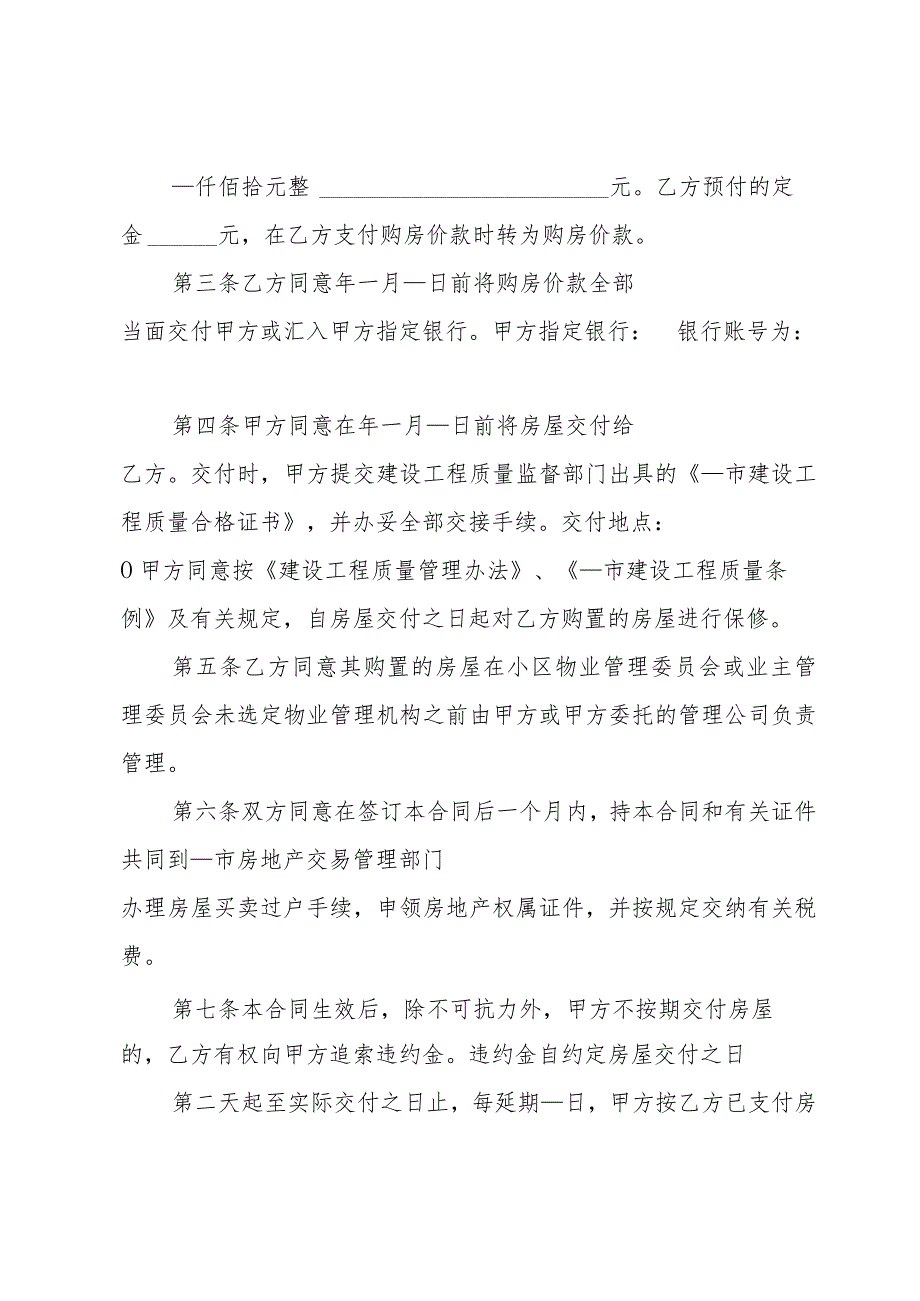 —仟佰拾元整 _________________________元。乙方预付的定
金 ______元，在乙方支付购房价款时转为购房价款。
第三条乙方同意年一月—日前将购房价款全部
当面交付甲方或汇入甲方指定银行。甲方指定银行： 银行账号为：
第四条甲方同意在年一月—日前将房屋交付给
乙方。交付时，甲方提交建设工程质量监督部门出具的《—市建设工
程质量合格证书》，并办妥全部交接手续。交付地点：
0 甲方同意按《建设工程质量管理办法》、《—市建设工程质量条
例》及有关规定，自房屋交付之日起对乙方购置的房屋进行保修。
第五条乙方同意其购置的房屋在小区物业管理委员会或业主管
理委员会未选定物业管理机构之前由甲方或甲方委托的管理公司负责
管理。
第六条双方同意在签订本合同后一个月内，持本合同和有关证件
共同到—市房地产交易管理部门
办理房屋买卖过户手续，申领房地产权属证件，并按规定交纳有关税
费。
第七条本合同生效后，除不可抗力外，甲方不按期交付房屋
的，乙方有权向甲方追索违约金。违约金自约定房屋交付之日
第二天起至实际交付之日止，每延期—日，甲方按乙方已支付房